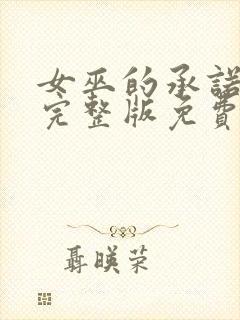 女巫的承諾
完整版免費
聶暎荣